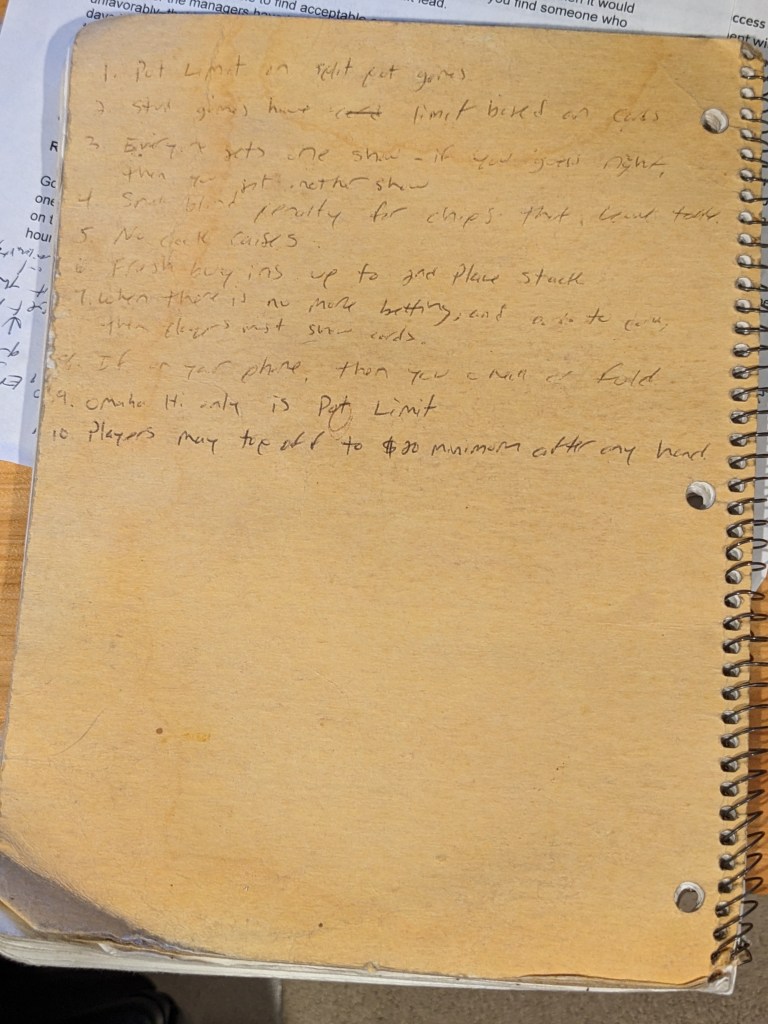 unfavorably, the managers to find acceptable lead. you find someone who it would
ccess
days
R
Go
one
on t
hour
1. Pot Limit on split pot games
2 Stud games have limit based on cards
3 Everyone gets one show - if you guess right,
then you get another show
4. Small blind penalty for chips that leave table
5. No check raises.
6 Fresh buy ins up to 2nd place stack
7. When there is no more betting, and
then players must show cards.
8. If on your phone, then you or fold.
9. Omaha Hi only is Pot Limit
10 Players may top off to $20 minimum after any hand.